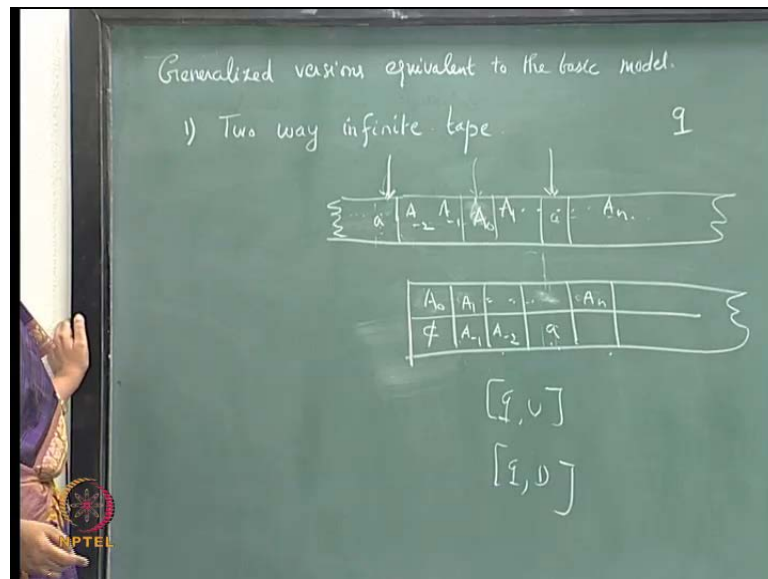 Generalized versions equivalent to the basic model.
1) Two way infinite tape q
a A₋₂ A₋₁ A₀ A₁ .. a .. Aₙ..
A₀ A₁ - .. Aₙ
¢ A₋₁ A₋₂ a
[q, U]
[q, D]
NPTEL